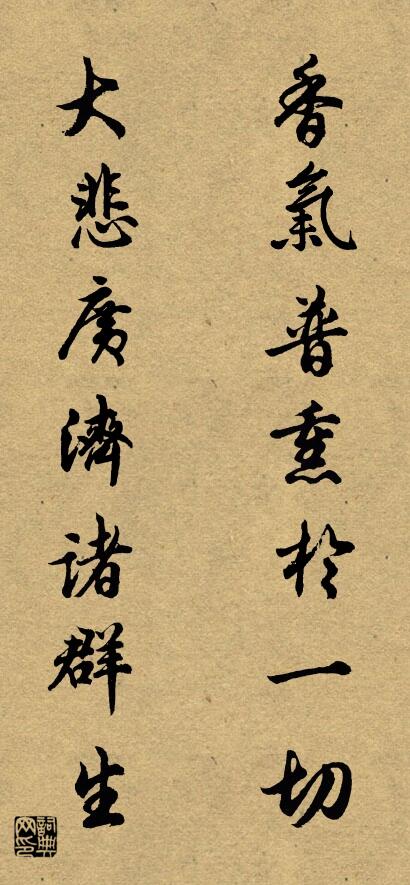 香氣普熏於一切
大悲廣濟諸群生
詞典网印